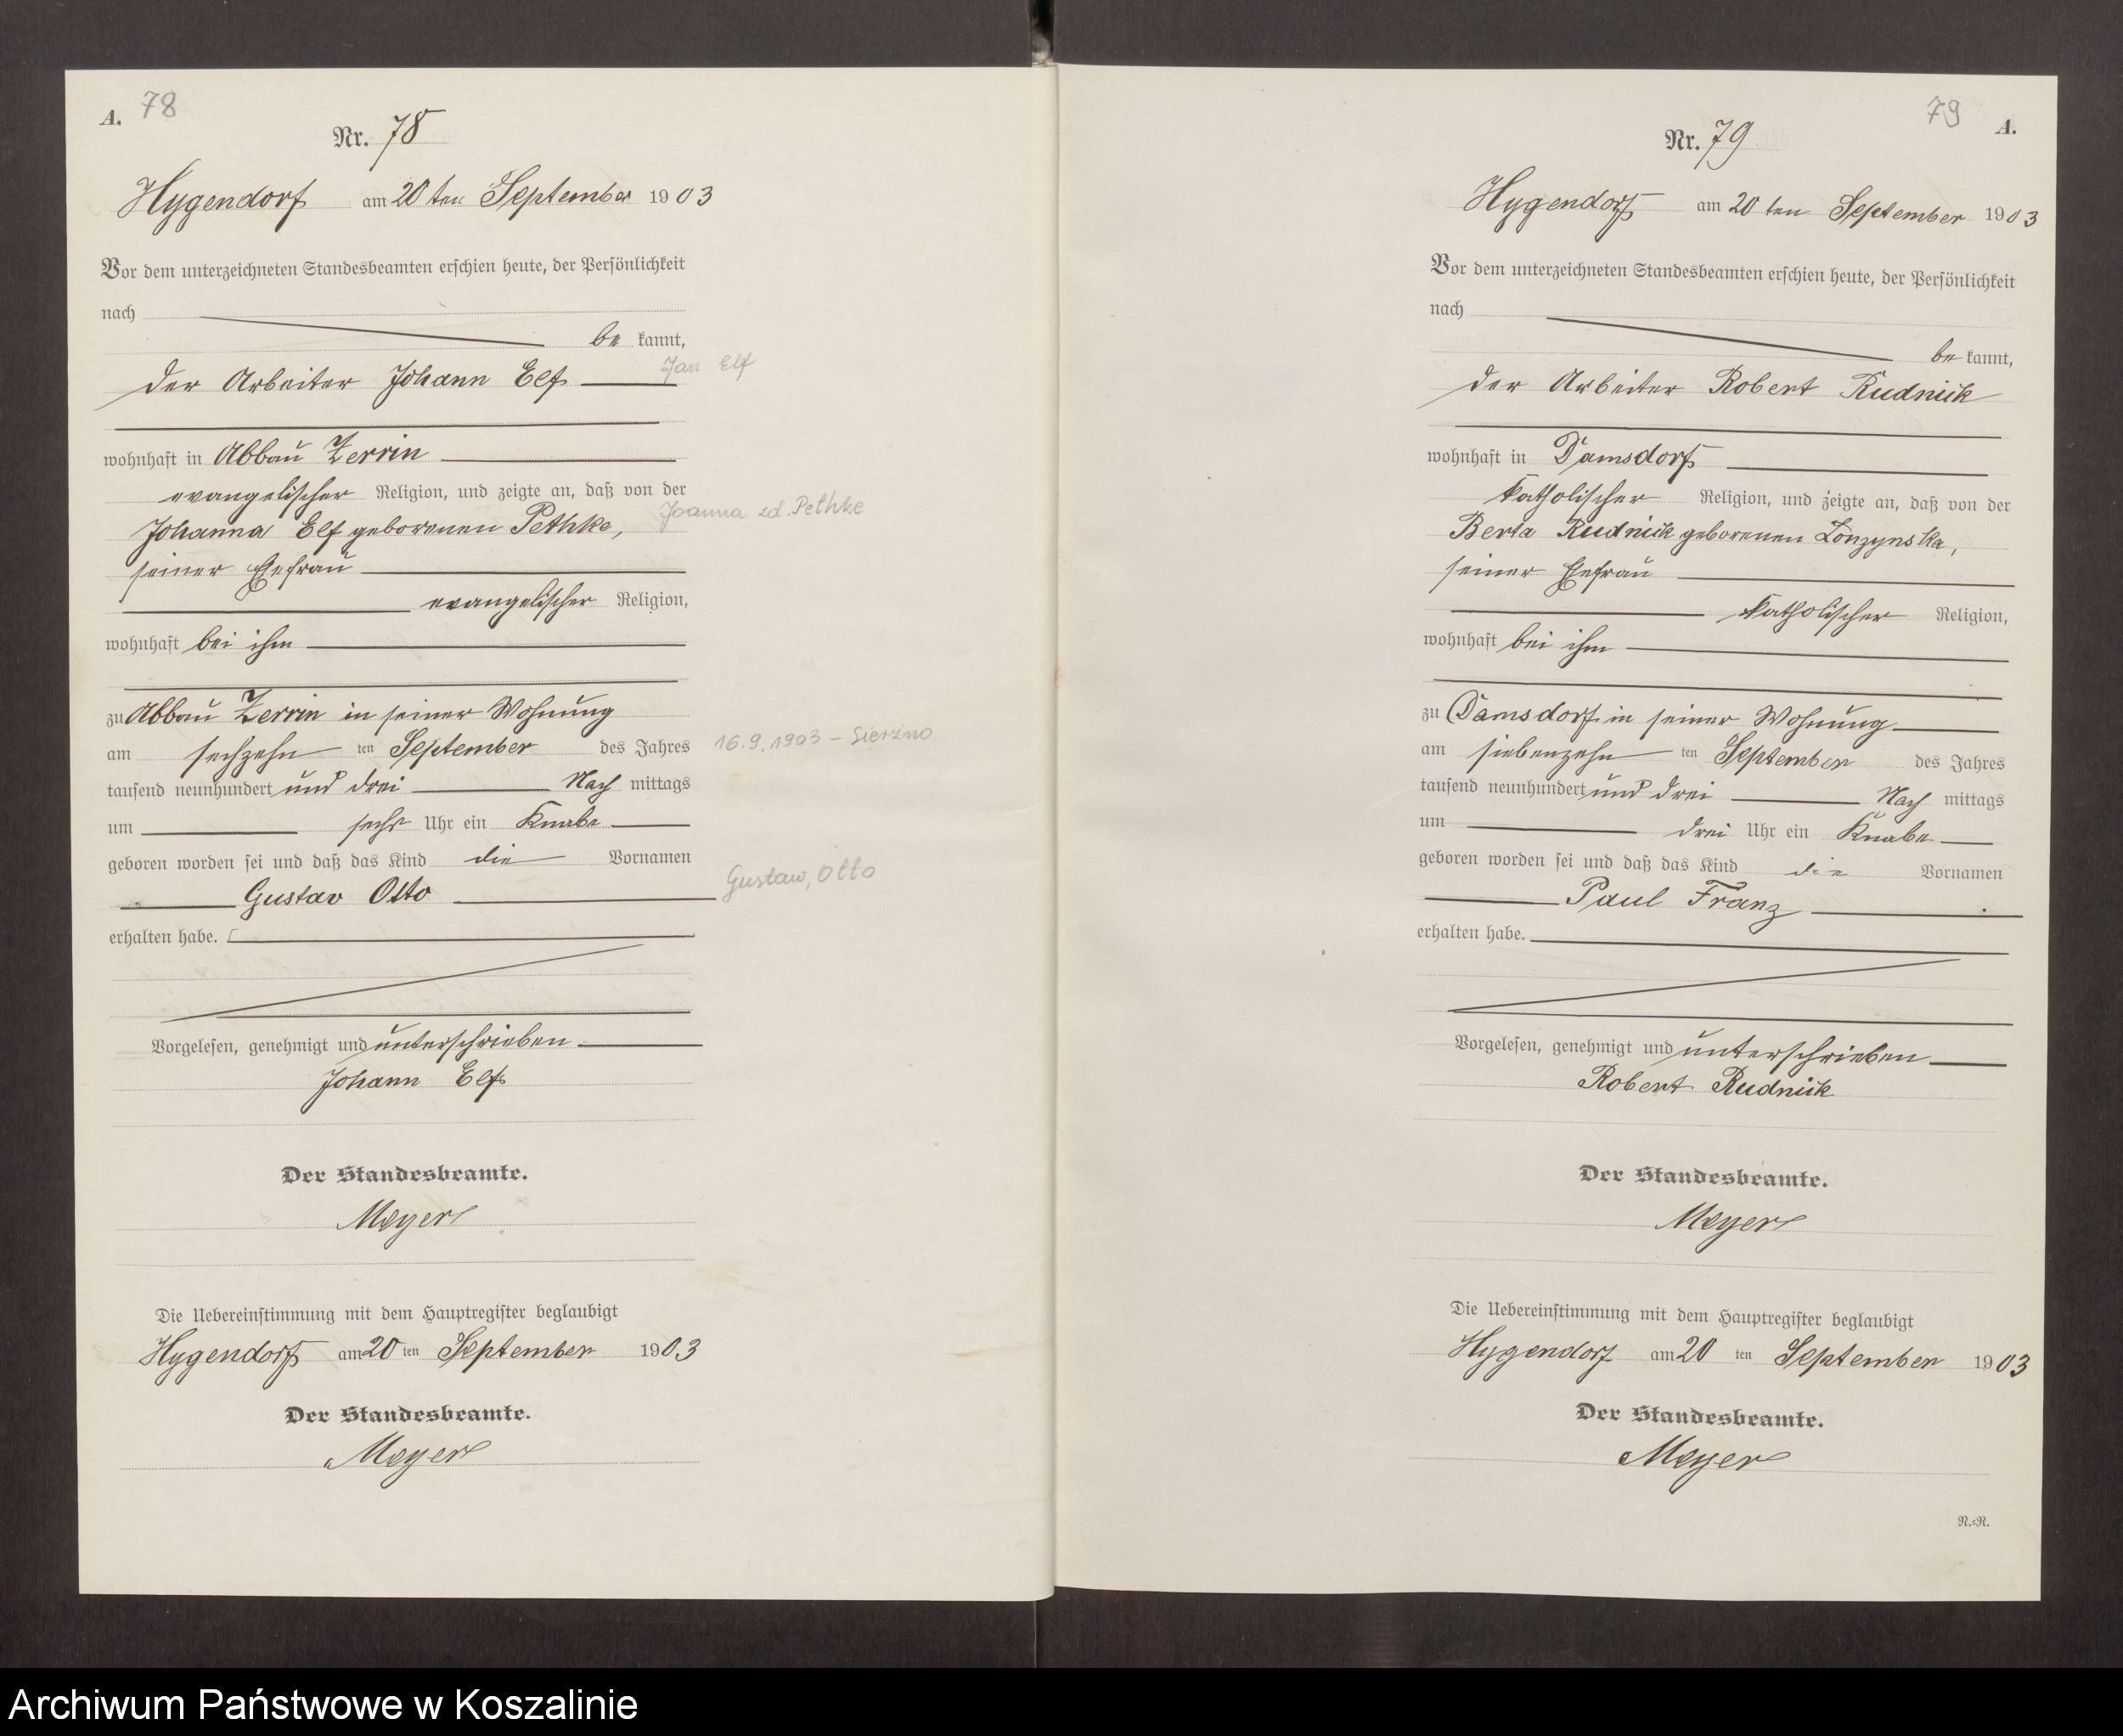 A. 78
Nr. 78
Hygendorf am 20 ten September 1903
Vor dem unterzeichneten Standesbeamten erschien heute, der Persönlichkeit
nach
be kannt,
der Arbeiter Johann Elf Jan Elf
wohnhaft in Abbau Zerrin
evangelischer Religion, und zeigte an, daß von der
Johanna Elf geborenen Pethke, Joanna zd. Pethke
seiner Ehefrau
evangelischer Religion,
wohnhaft bei ihm
zu Abbau Zerrin in seiner Wohnung
am sechzehn ten September des Jahres 16.9.1903 – Sierzno
tausend neunhundert und drei Nach mittags
um sechs Uhr ein Knabe
geboren worden sei und daß das Kind die Vornamen
Gustav Otto Gustaw, Otto
erhalten habe.
Vorgelesen, genehmigt und unterschrieben
Johann Elf
Der Standesbeamte.
Meyer
Die Uebereinstimmung mit dem Hauptregister beglaubigt
Hygendorf am 20 ten September 1903
Der Standesbeamte.
Meyer
79 A.
Nr. 79
Hygendorf am 20 ten September 1903
Vor dem unterzeichneten Standesbeamten erschien heute, der Persönlichkeit
nach
be kannt,
der Arbeiter Robert Rudnick
wohnhaft in Damsdorf
katholischer Religion, und zeigte an, daß von der
Berta Rudnick geborenen Lonzynska,
seiner Ehefrau
katholischer Religion,
wohnhaft bei ihm
zu Damsdorf in seiner Wohnung
am siebenzehn ten September des Jahres
tausend neunhundert und drei Nach mittags
um drei Uhr ein Knabe
geboren worden sei und daß das Kind die Vornamen
Paul Franz
erhalten habe.
Vorgelesen, genehmigt und unterschrieben
Robert Rudnick
Der Standesbeamte.
Meyer
Die Uebereinstimmung mit dem Hauptregister beglaubigt
Hygendorf am 20 ten September 1903
Der Standesbeamte.
Meyer
N.=N.
Archiwum Państwowe w Koszalinie